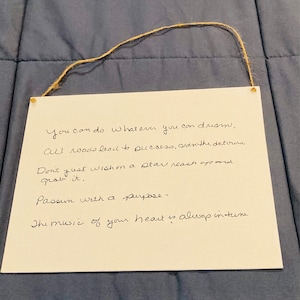 you can do whatever you can dream.
All roads lead to success, even the detours
Dont just wish on a star reach up and
grab it.
Passion with a purpose.
The music of your heart is always in tune